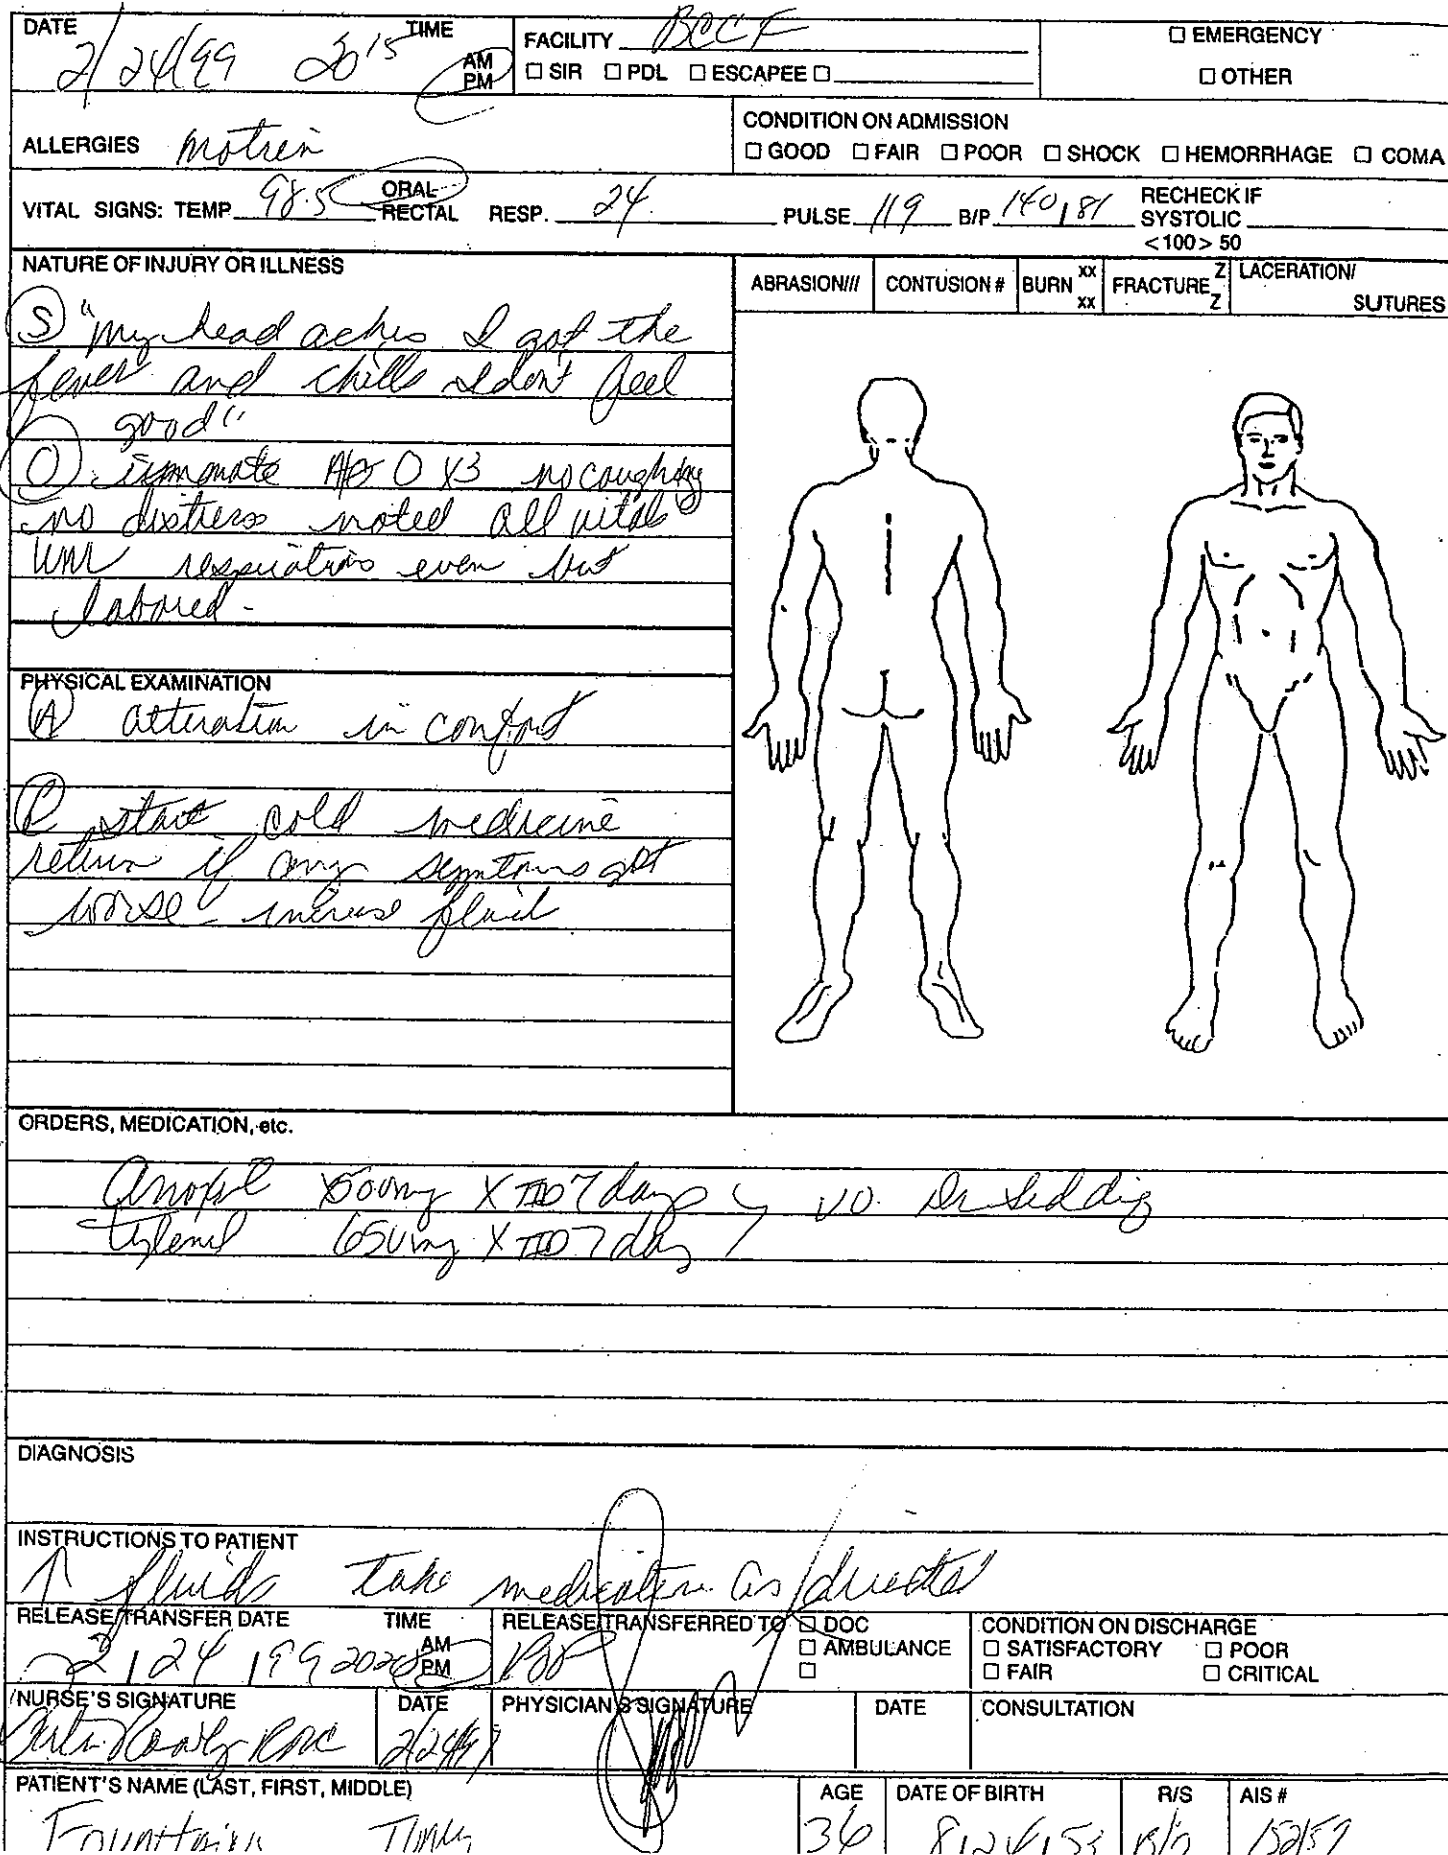 DATE TIME FACILITY BCCF □ EMERGENCY
2/24/99 2015 AM PM □ SIR □ PDL □ ESCAPEE □ □ OTHER
ALLERGIES motrin
CONDITION ON ADMISSION
□ GOOD □ FAIR □ POOR □ SHOCK □ HEMORRHAGE □ COMA
VITAL SIGNS: TEMP 98.5 ORAL RECTAL RESP. 24 PULSE 119 B/P 140/81 RECHECK IF SYSTOLIC <100> 50
NATURE OF INJURY OR ILLNESS
ABRASION/// CONTUSION # BURN xx xx FRACTURE Z Z LACERATION/ SUTURES
(S) "my head aches I got the
fever and chills I don't feel
good"
(O) inmate A&O X3 no coughing
no distress noted all vitals
WNL respirations even but
labored -
PHYSICAL EXAMINATION
(A) alteration in comfort
(P) start cold medicine
return if any symtoms get
worse increase fluid
ORDERS, MEDICATION, etc.
500mg X TID 7 days V.O. Dr
Tylenol 650mg X TID 7 day
DIAGNOSIS
INSTRUCTIONS TO PATIENT
↑ fluids take medication as directed
RELEASE/TRANSFER DATE TIME RELEASE/TRANSFERRED TO □ DOC CONDITION ON DISCHARGE
2/24/99 AM PM POP □ AMBULANCE □ SATISFACTORY □ POOR
□ □ FAIR □ CRITICAL
NURSE'S SIGNATURE DATE PHYSICIAN'S SIGNATURE DATE CONSULTATION
2/24/99
PATIENT'S NAME (LAST, FIRST, MIDDLE) AGE DATE OF BIRTH R/S AIS #
Fountain 36 B/